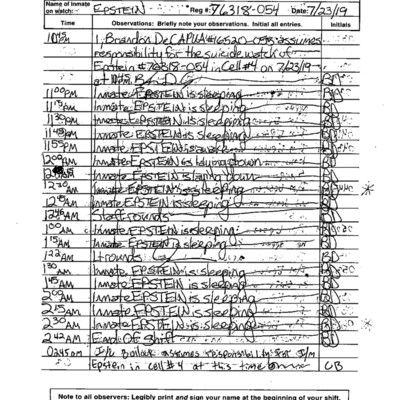 Name of inmate
on watch: EPSTEIN Reg #: 76318-054 Date 7/23/19
Time Observations: Briefly note your observations. Initial all entries. Initials
10:45 PM I, Brandon DeCAPUA #16520 assumes
responsibility for the suicide watch of
Epstein #76318-054 in Cell #4 on 7/23/19
at 10:45
11:00PM Inmate EPSTEIN is sleeping BD
11:15AM Inmate EPSTEIN is sleeping BD
11:30PM Inmate EPSTEIN is sleeping BD
11:45PM Inmate EPSTEIN is sleeping BD
11:55PM Inmate EPSTEIN is awake BD
Inmate EPSTEIN is laying down BD
Inmate EPSTEIN is laying down BD
12:30AM Inmate EPSTEIN is sleeping BD
Inmate EPSTEIN is sleeping BD
Staff rounds BD
1:00AM Inmate EPSTEIN is sleeping BD
1:15AM Inmate EPSTEIN is sleeping BD
1:22AM Lt rounds BD
1:30AM Inmate EPSTEIN is sleeping BD
1:45AM Inmate EPSTEIN is sleeping BD
2:00AM Inmate EPSTEIN is sleeping BD
2:15AM Inmate EPSTEIN is sleeping BD
2:30AM Inmate EPSTEIN is sleeping BD
2:42AM End OF Shift BD
0245am I/C assumes responsibility for I/M
Epstein in cell #4 at this time
Note to all observers: Legibly print and sign your name at the beginning of your shift.